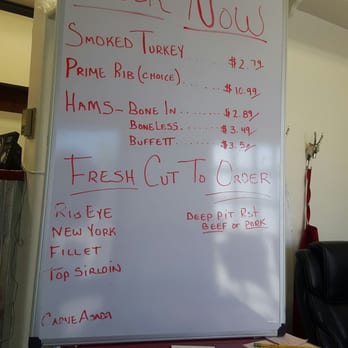 NOW
SMOKED TURKEY ........ $2.79
PRIME RIB (CHOICE) ........ $10.99
HAMS - BONE IN ........ $2.89
BONELESS ........ $3.49
BUFFETT ........
FRESH CUT TO ORDER
RIB EYE
NEW YORK
FILLET
TOP SIRLOIN
DEEP PIT RST
BEEF or PORK
CARNE ASADA